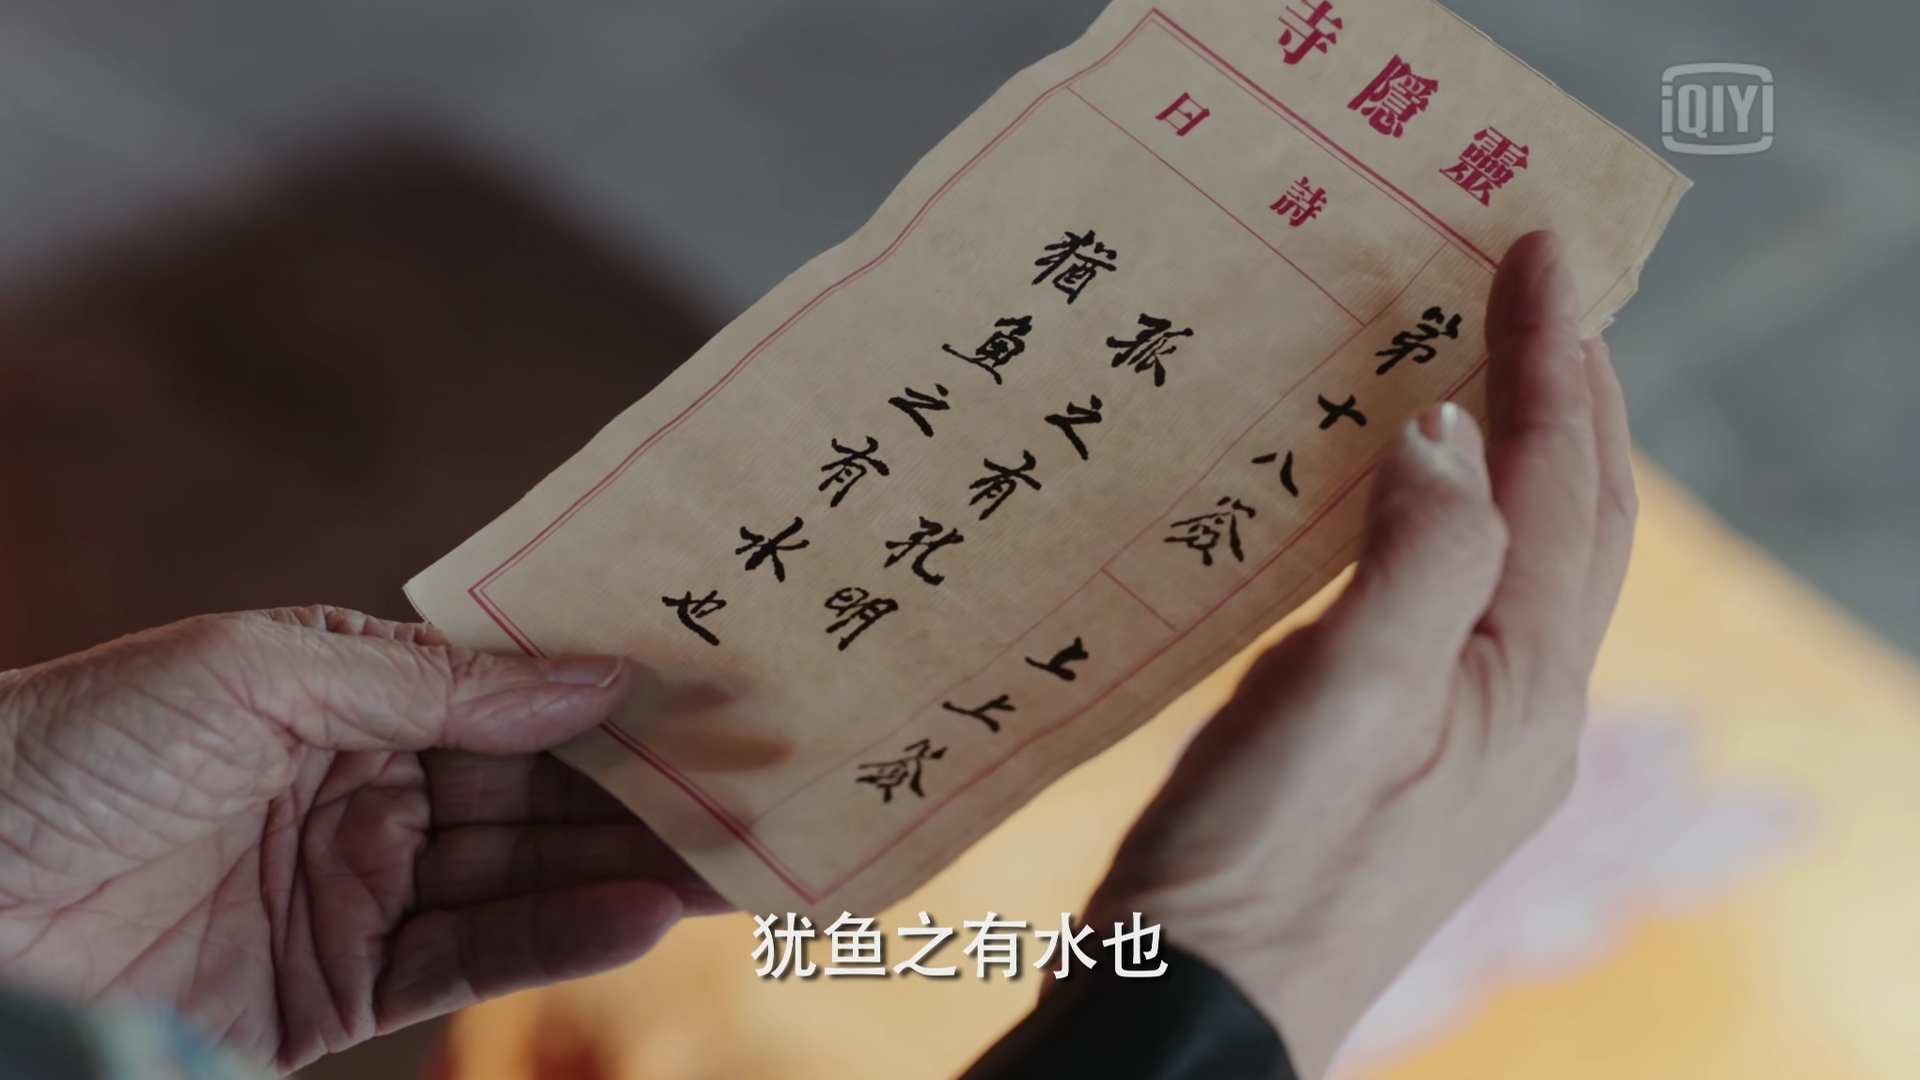 靈隱寺
詩曰
第十八簽
上上簽
孤之有孔明
猶魚之有水也
iQIYI
犹鱼之有水也